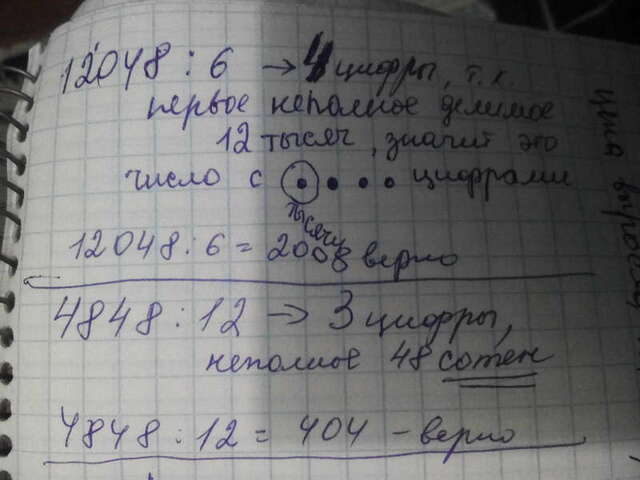 12048 : 6 → 4 цифры, т.к.
первое неполное делимое
12 тысяч, значит это
число с • • • • цифрами
тысячи
12048 : 6 = 2008 верно
4848 : 12 → 3 цифры,
неполное 48 сотен
4848 : 12 = 404 – верно